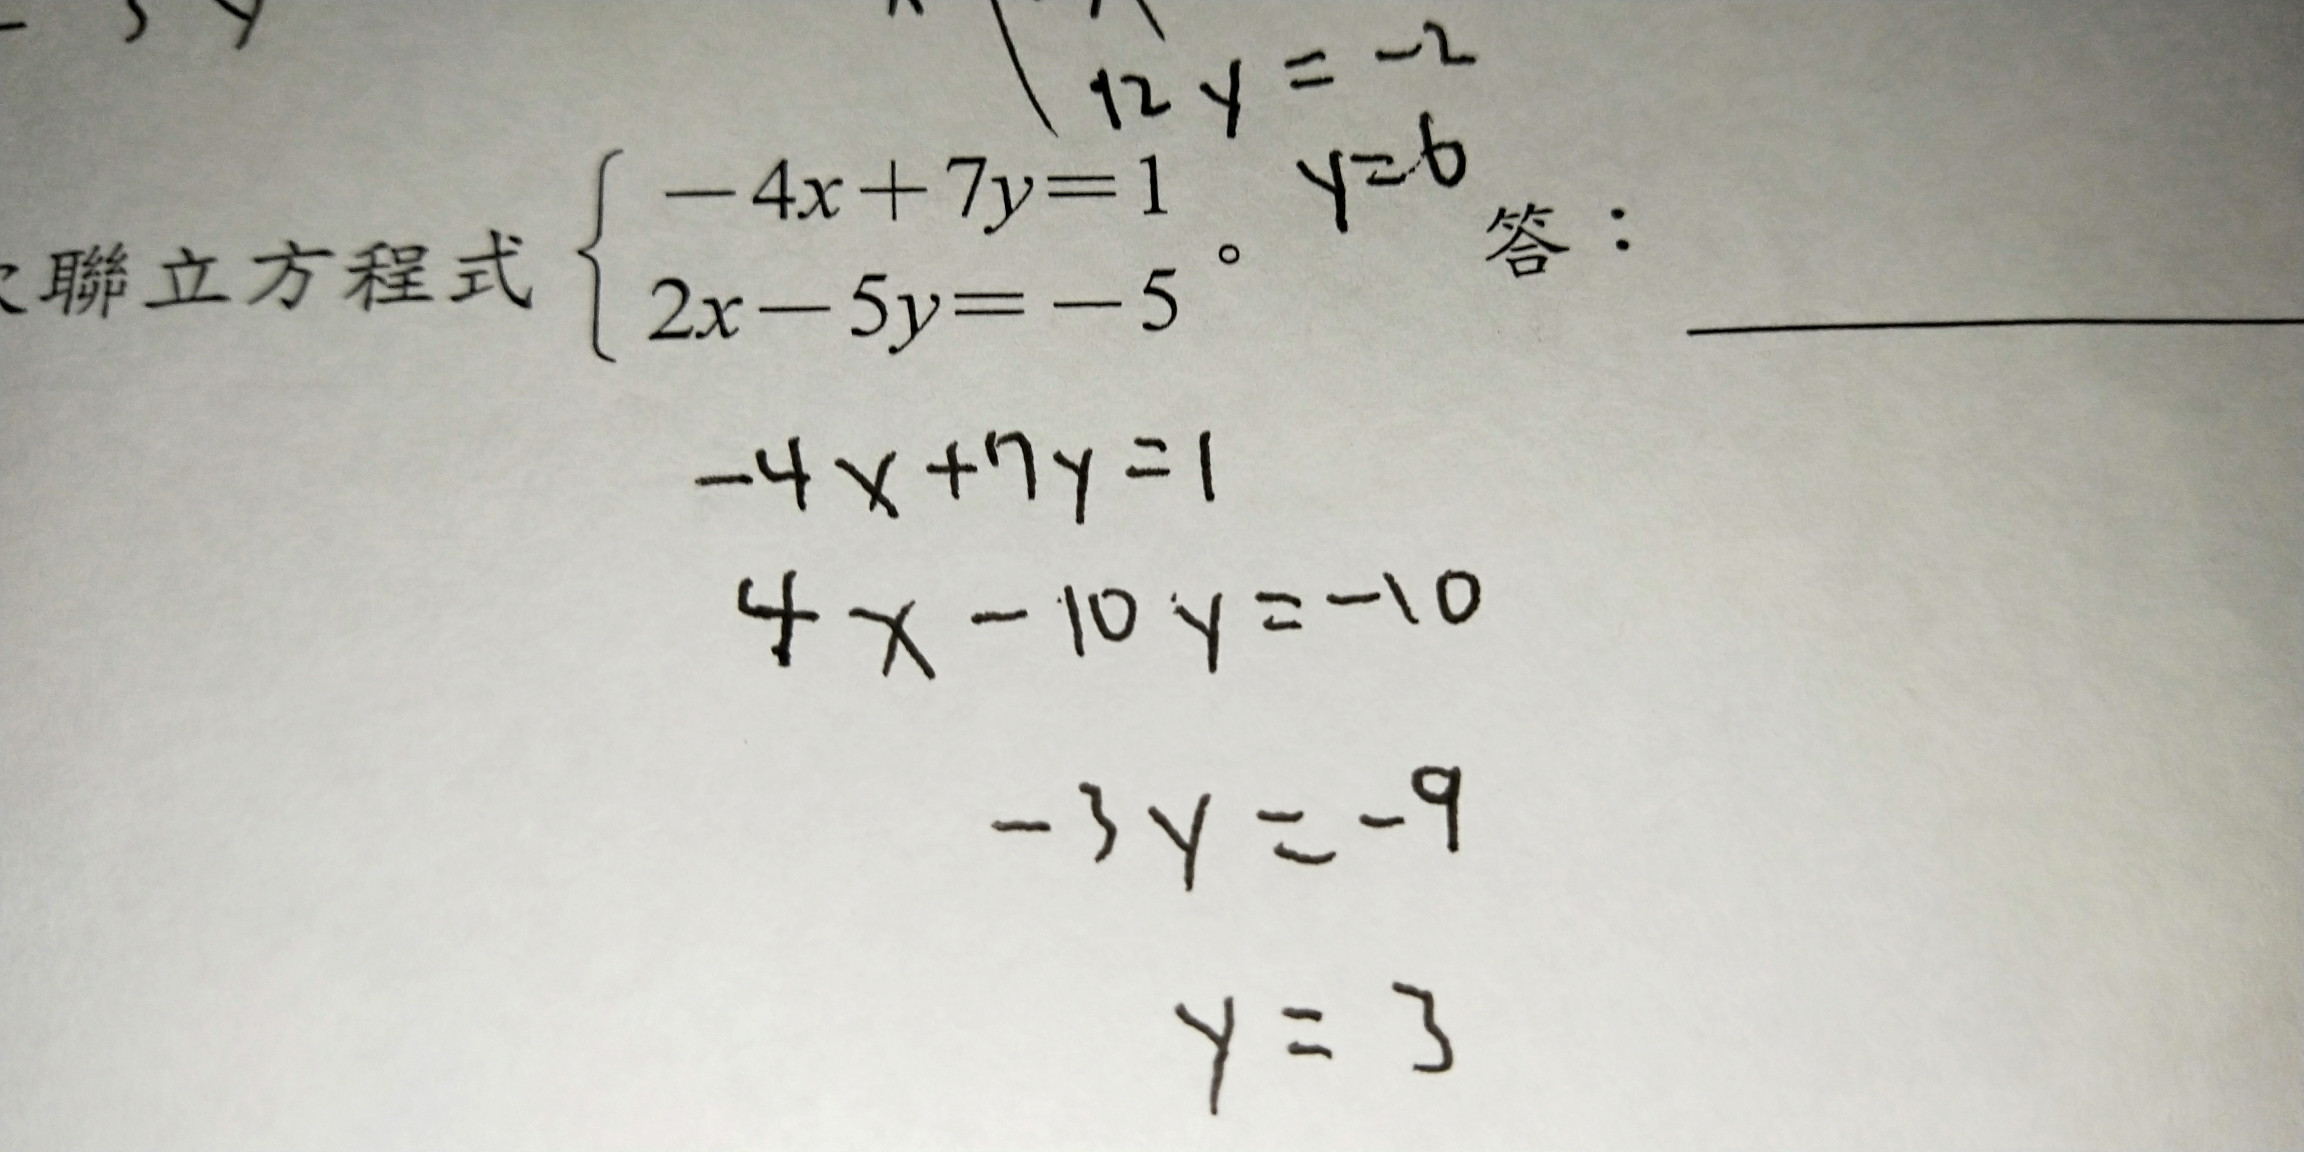 12y=-2
y=6
聯立方程式 { -4x+7y=1
2x-5y=-5 。 答：
-4x+7y=1
4x-10y=-10
-3y=-9
y=3